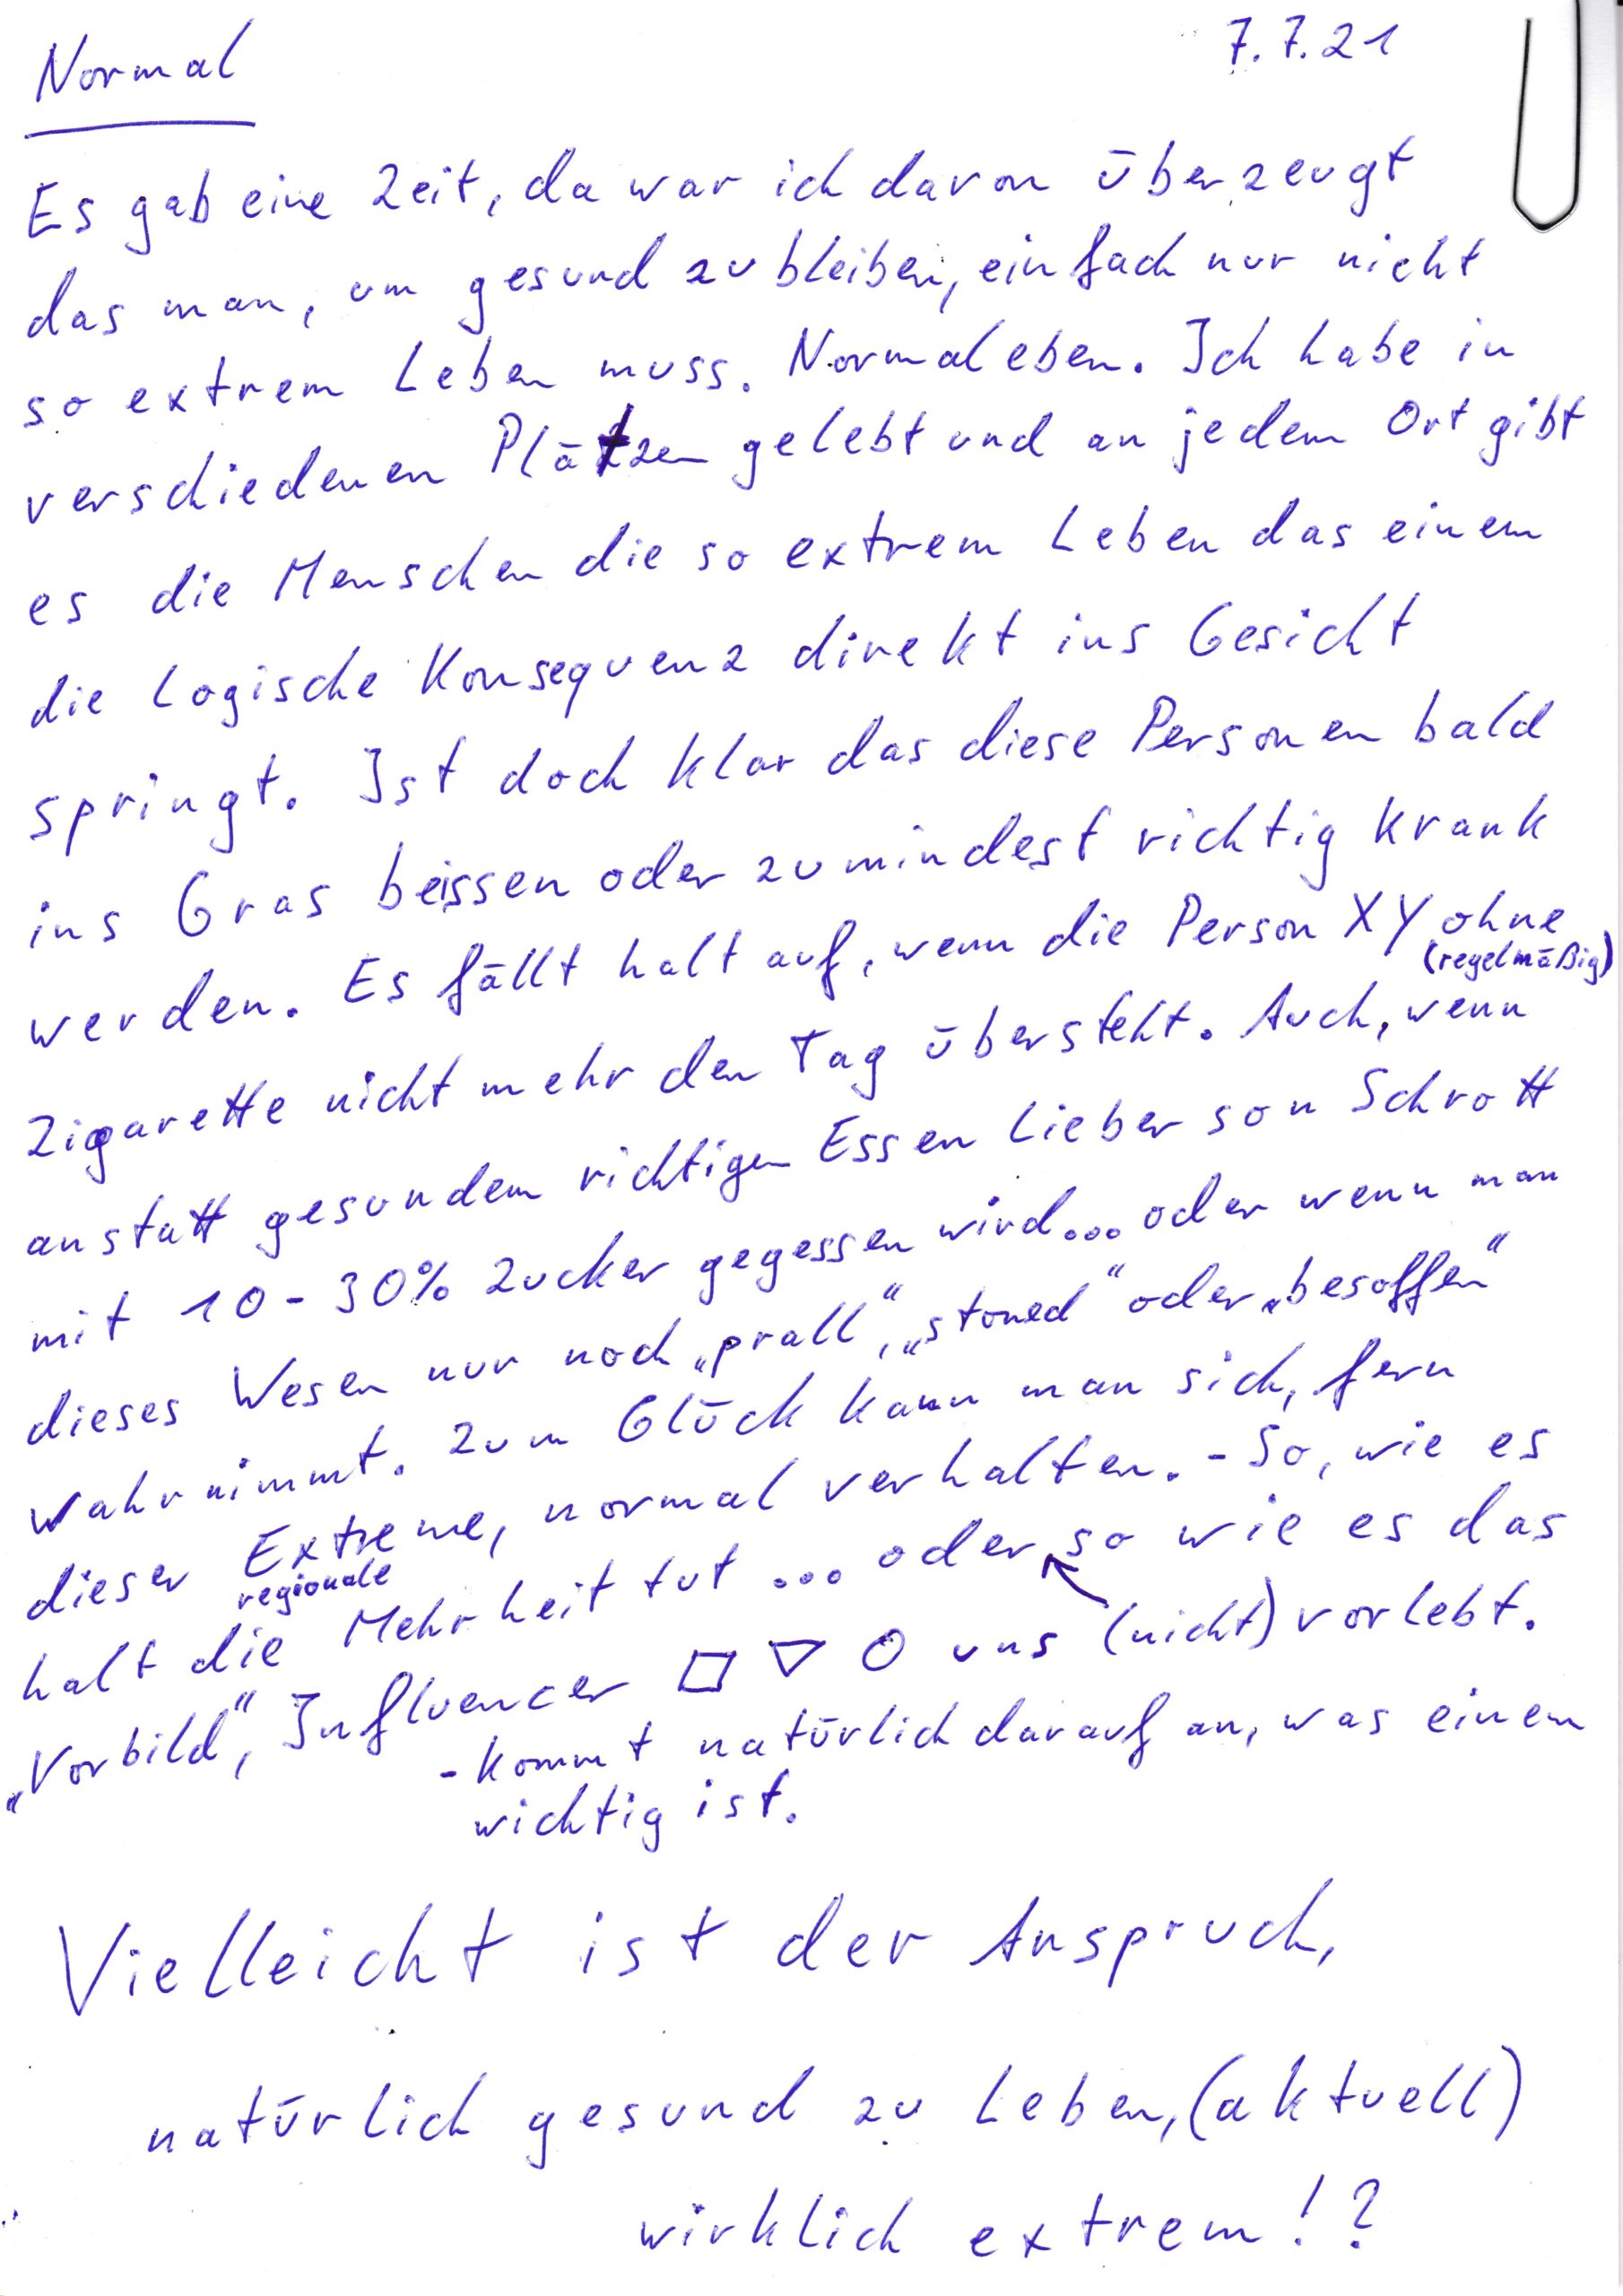 Normal
7.7.21
Es gab eine Zeit, da war ich davon überzeugt
das man, um gesund zu bleiben, einfach nur nicht
so extrem Leben muss. Normal eben. Ich habe in
verschiedenen Plätzen gelebt und an jedem Ort gibt
es die Menschen die so extrem Leben das einem
die Logische Konsequenz direkt ins Gesicht
springt. Ist doch klar das diese Personen bald
ins Gras beissen oder zumindest richtig krank
werden. Es fällt halt auf, wenn die Person XY ohne
(regelmäßig)
Zigarette nicht mehr den Tag übersteht. Auch, wenn
anstatt gesundem richtigen Essen Lieber son Schrott
mit 10-30% Zucker gegessen wird... oder wenn man
dieses Wesen nur noch „prall“, „stoned“ oder „besoffen“
wahrnimmt. Zum Glück kann man sich, fern
dieser Extreme, normal verhalten. - So, wie es
regionale
halt die Mehrheit tut ... oder so wie es das
„Vorbild“, Influencer □ ▽ O uns (nicht) vorlebt.
- kommt natürlich darauf an, was einem
wichtig ist.
Vielleicht ist der Anspruch,
natürlich gesund zu Leben, (aktuell)
wirklich extrem!?